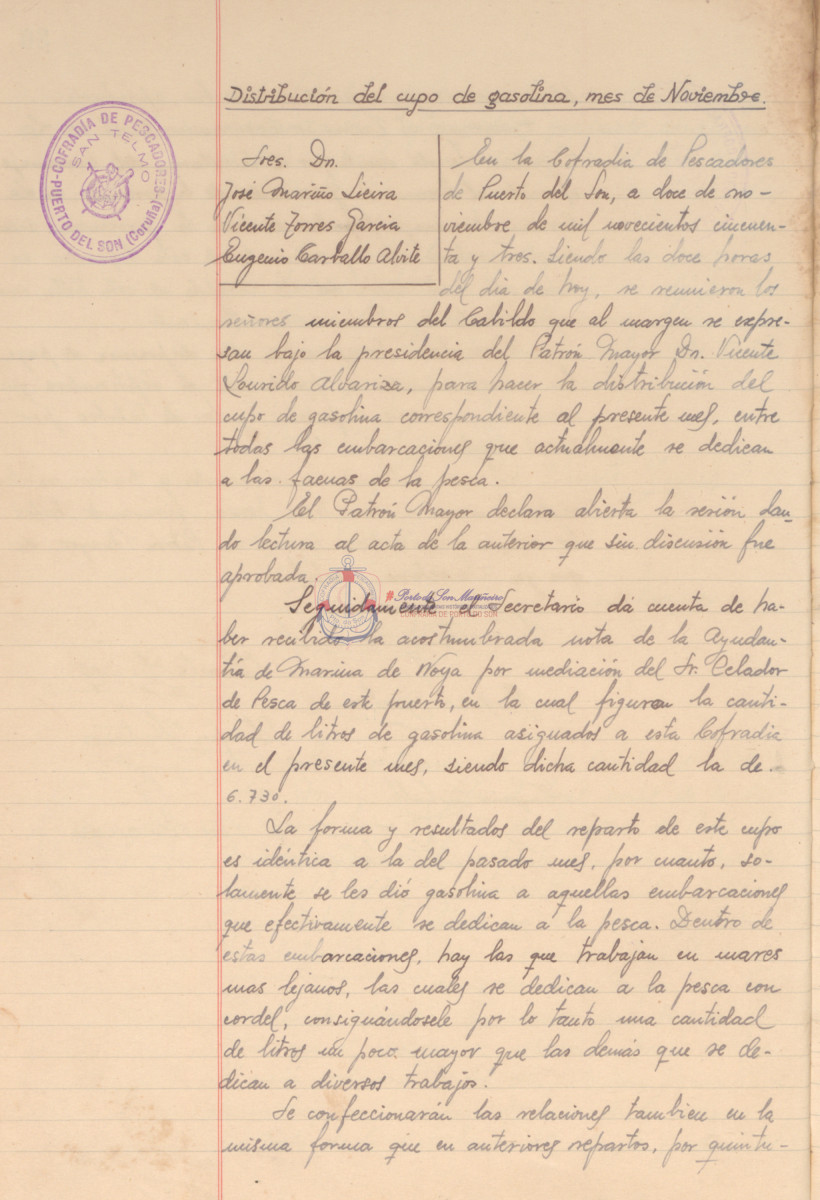 Distribución del cupo de gasolina, mes de Noviembre.
COFRADÍA DE PESCADORES
SAN TELMO
PUERTO DEL SON (Coruña)
Sres. Dn.
José Mariño Lieira
Vicente Torres Garcia
Eugenio Carballo Alvite
En la Cofradia de Pescadores
de Puerto del Son, a doce de no-
viembre de mil novecientos cincuen-
ta y tres. Siendo las doce horas
del dia de hoy, se reunieron los
señores miembros del Cabildo que al margen se expre-
san bajo la presidencia del Patrón Mayor Dn. Vicente
Lourido Alvariza, para hacer la distribución del
cupo de gasolina correspondiente al presente mes, entre
todas las embarcaciones que actualmente se dedican
a las faenas de la pesca.
El Patrón Mayor declara abierta la sesión dan-
do lectura al acta de la anterior que sin discusión fue
aprobada.
#Porto do Son Mariñeiro
COFRADÍA DE PORTO DO SON
Seguidamente el Secretario dá cuenta de ha-
ber recibido la acostumbrada nota de la Ayudan-
tía de Marina de Noya por mediación del Sr. Celador
de Pesca de este puerto, en la cual figuran la canti-
dad de litros de gasolina asignados a esta Cofradia
en el presente mes, siendo dicha cantidad la de.-
6.730.
La forma y resultados del reparto de este cupo
es idéntica a la del pasado mes, por cuanto, so-
lamente se les dió gasolina a aquellas embarcaciones
que efectivamente se dedican a la pesca. Dentro de
estas embarcaciones, hay las que trabajan en mares
mas lejanos, las cuales se dedican a la pesca con
cordel, consignándosele por lo tanto una cantidad
de litros un poco mayor que las demás que se de-
dican a diversos trabajos.
Se confeccionarán las relaciones tambien en la
misma forma que en anteriores repartos, por quintu-